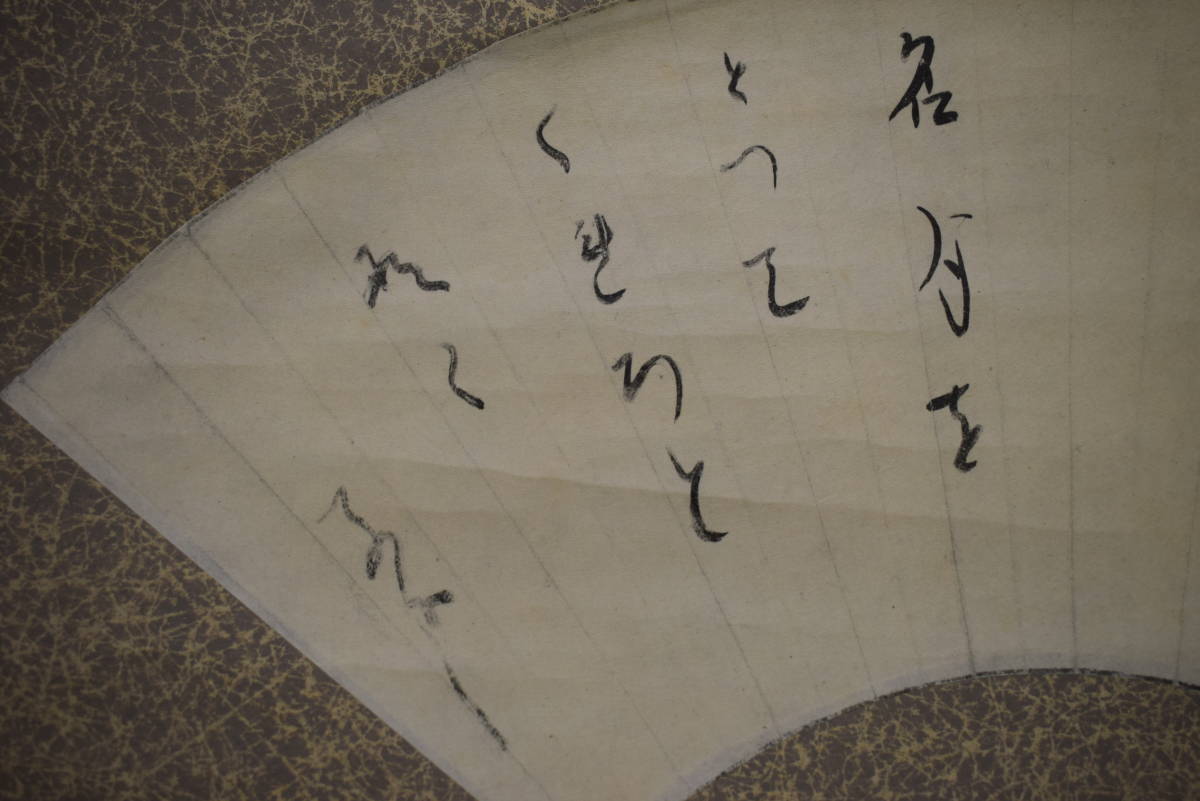 名月を
とつて
くれろと
なく